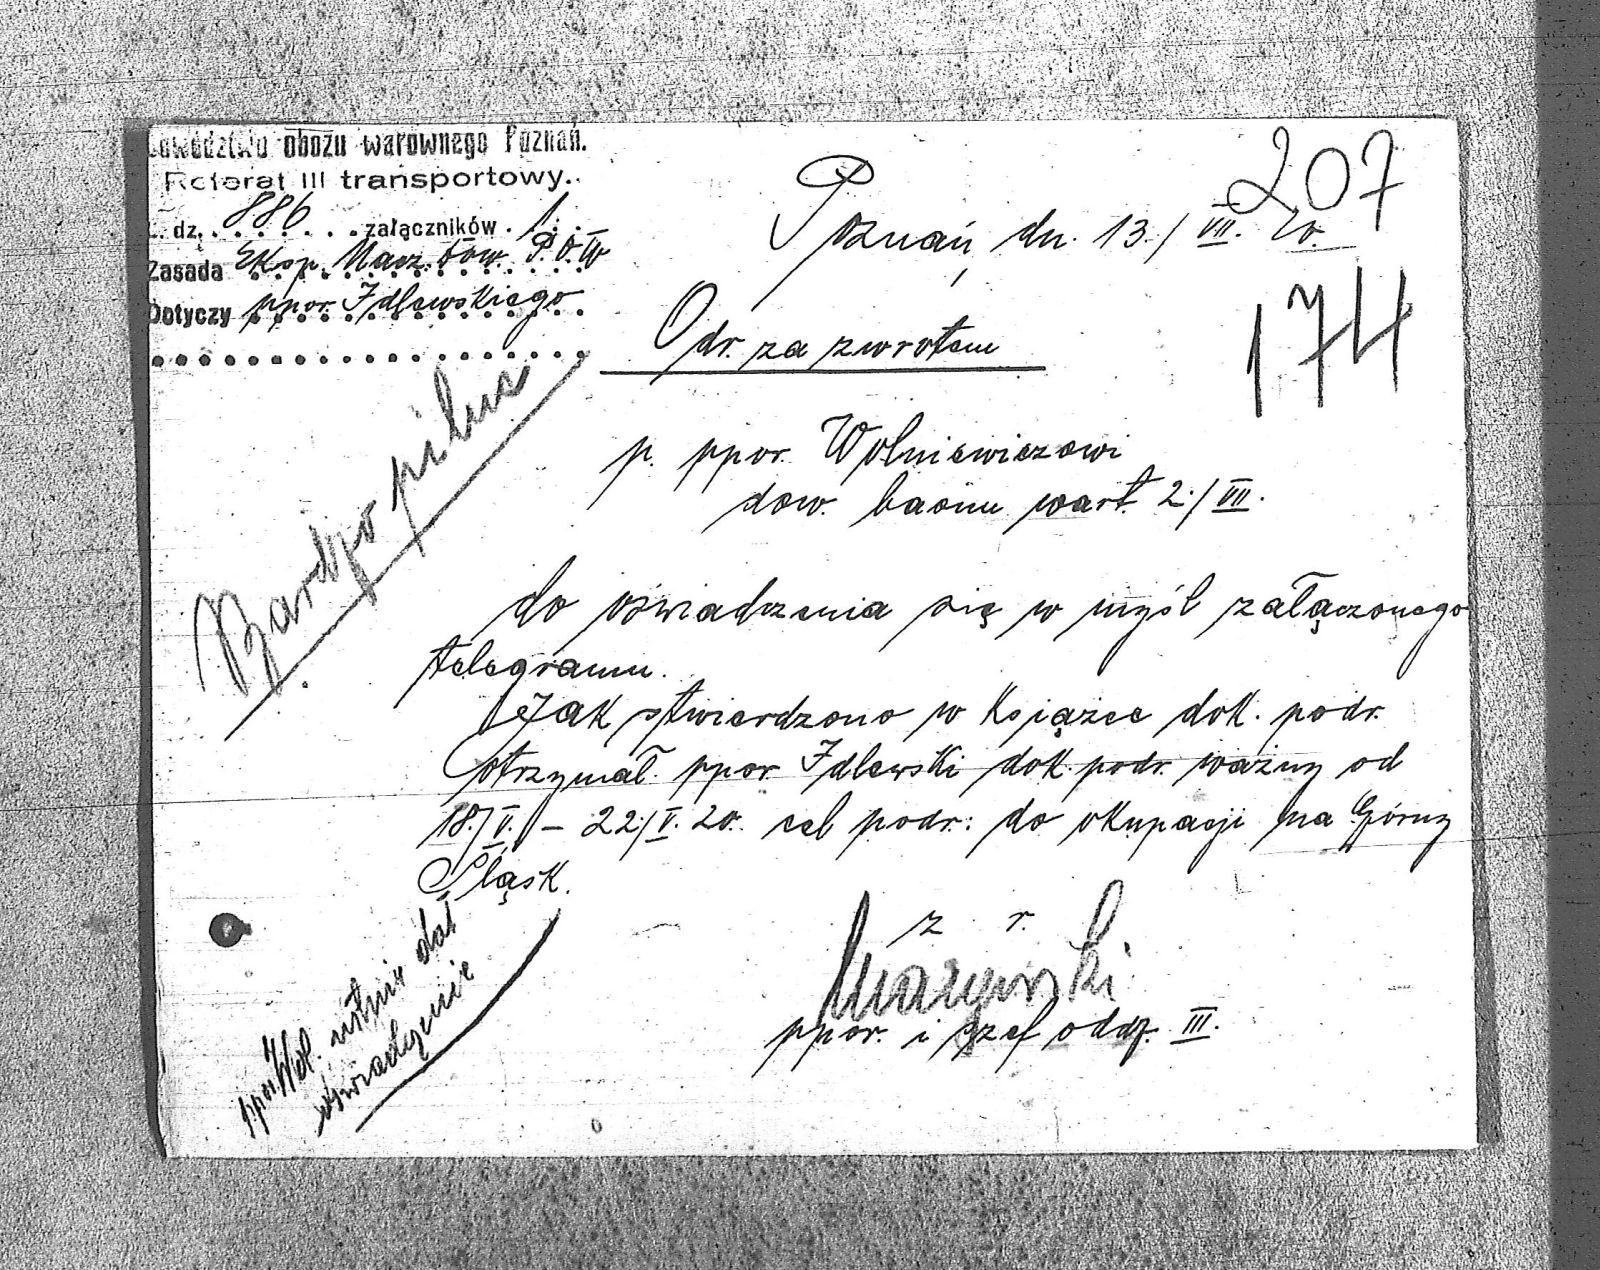 Dowództwo obozu warownego Poznań.
Referat III transportowy.
L. dz. 886 załączników 1.
Zasada Eksp. Macz. Dow. P.O.W
Dotyczy ppor. Idlewskiego
207
Poznań, dn. 13./VII. 20.
174
Odr. za zwrotem
Bardzo pilne
p. ppor. Wolniewiczowi
dow. baonu wart. 2./VII.
do oświadczenia się w myśl załączonego
telegramu.
Jak stwierdzono w książce dok. podr.
otrzymał ppor. Idlewski dok. podr. ważny od
18./V. – 22./V. 20. cel podr.: do okupacji na Górny
Śląsk.
z r.
ppor. i szef oddz. III.
ppor. Wol. ustnie dał
oświadczenie